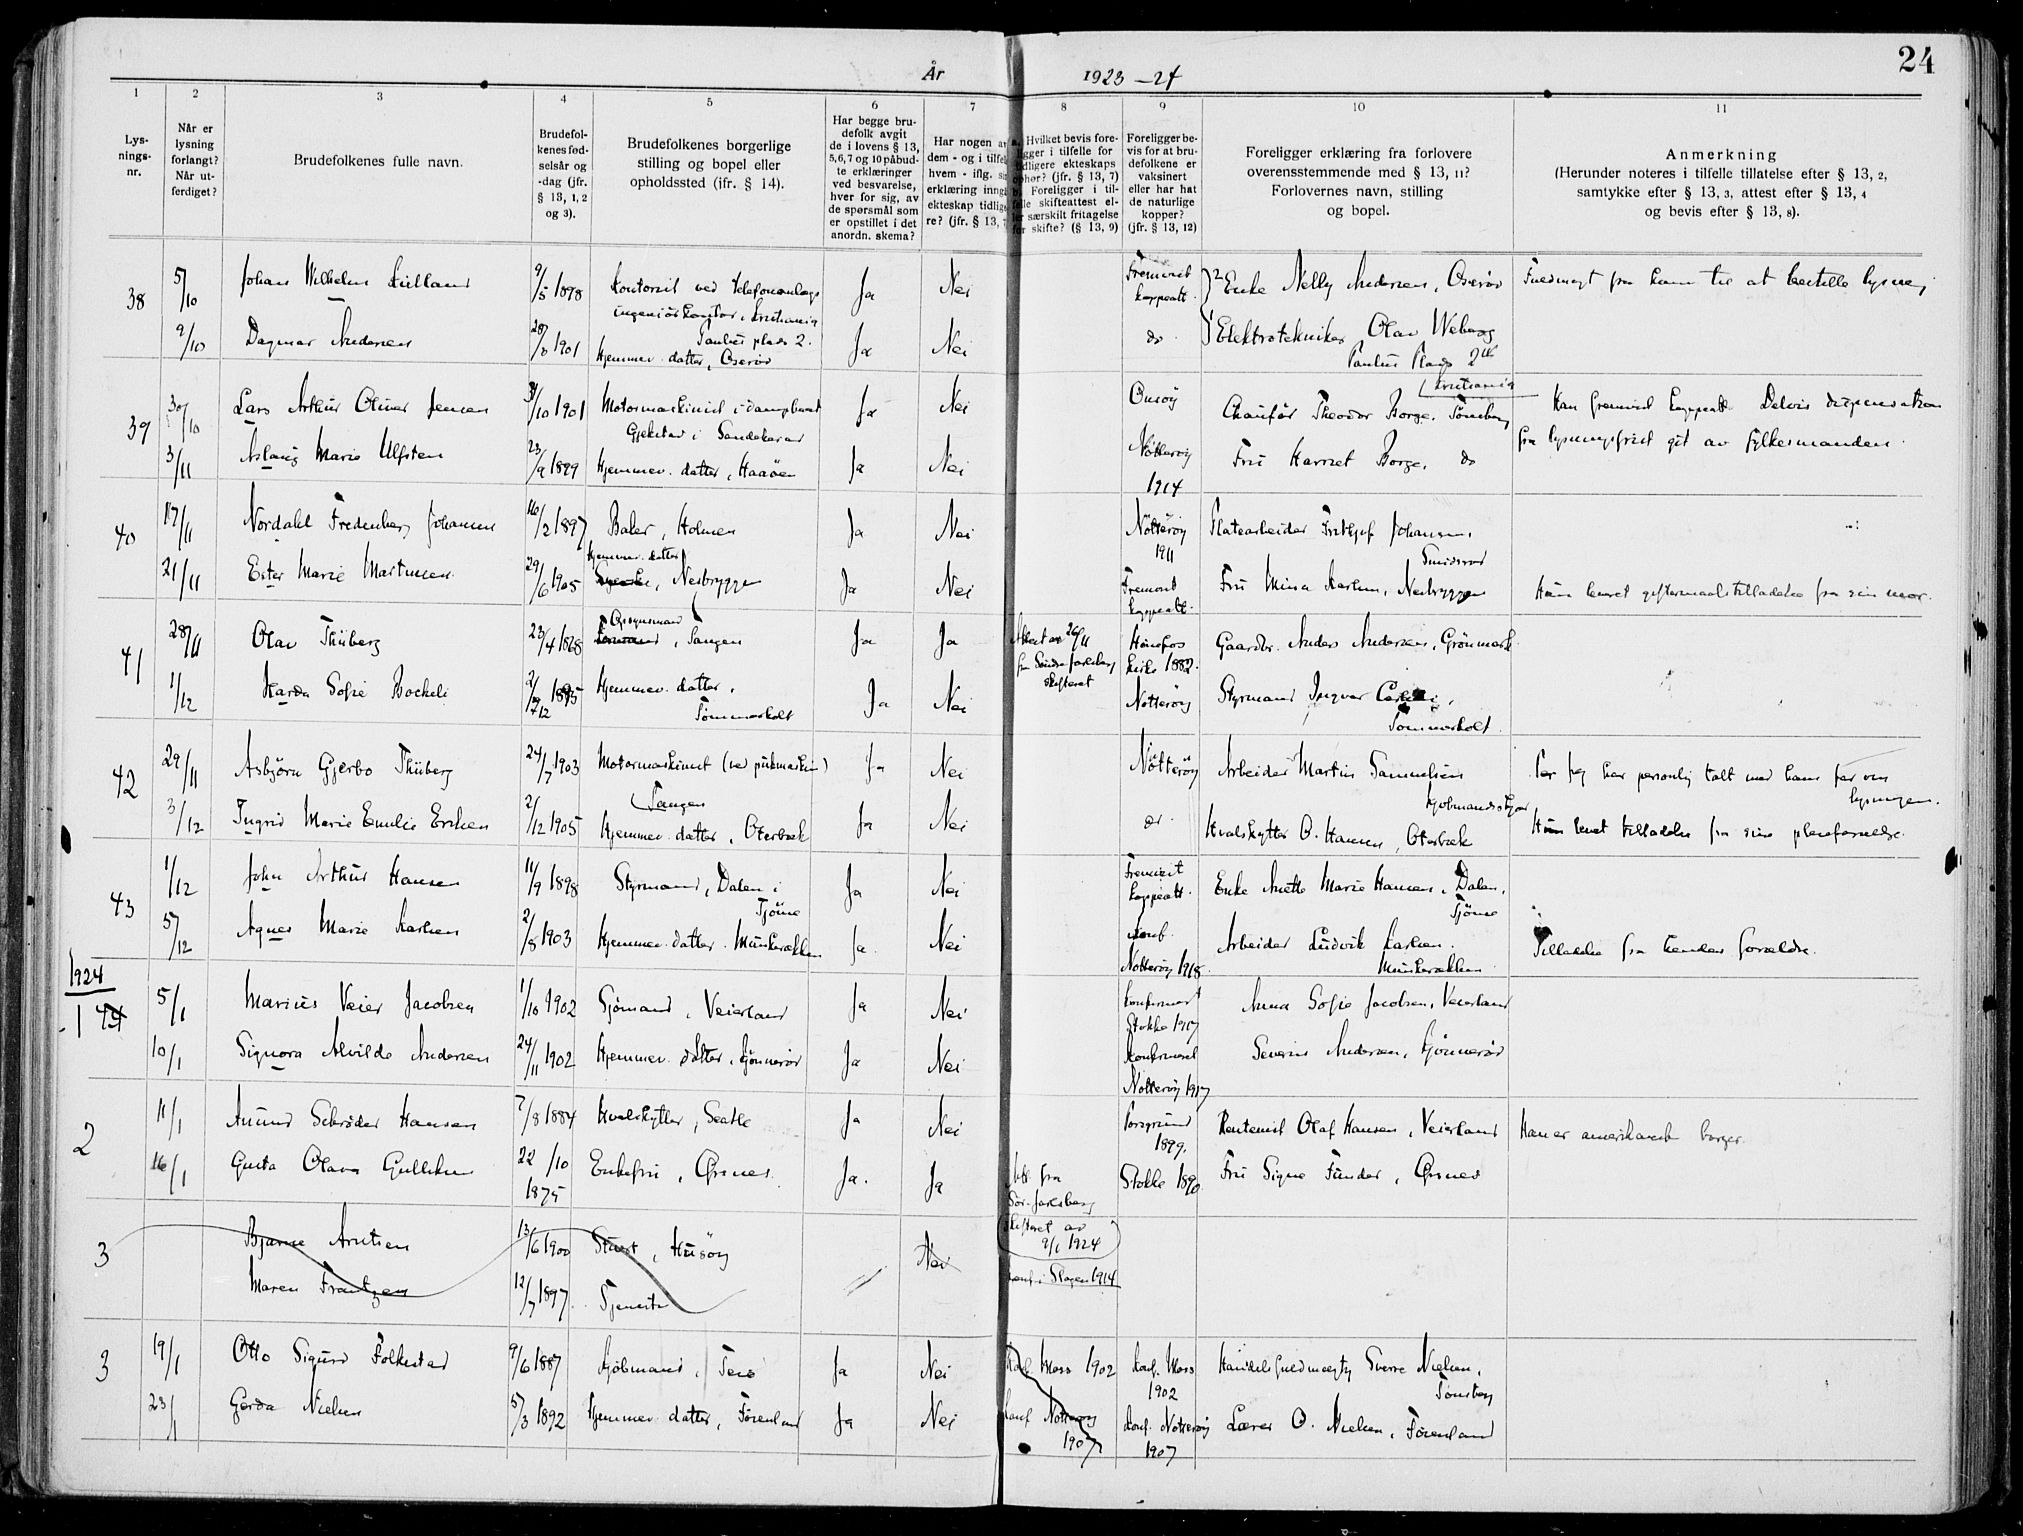 24
År 1923-24
1 2 3 4 5 6 7 8 9 10 11
Lys-
nings-
nr.
Når er
lysning
forlangt?
Når ut-
ferdiget?
Brudefolkenes fulle navn.
Brudefol-
kenes fød-
selsår og
-dag (jfr.
§ 13, 1, 2
og 3).
Brudefolkenes borgerlige
stilling og bopel eller
opholdssted (jfr. § 14).
Har begge bru-
defolk avgit
de i lovens § 13,
5,6,7 og 10 påbud-
te erklæringer
ved besvarelse,
hver for sig, av
de spørsmål som
er opstillet i det
anordn. skema?
Har nogen av
dem - og i tilfel
hvem - iflg. si
erklæring inngå
ekteskap tidlig
re? (jfr. § 13, 7
Hvilket bevis fore-
gger i tilfelle for
tidligere ekteskaps
ophør? (jfr. § 13, 7)
Foreligger i til-
felle skifteattest el-
ler særskilt fritagelse
for skifte? (§ 13, 9)
Foreligger be-
vis for at bru-
defolkene er
vaksinert
eller har hat
de naturlige
kopper?
(jfr. § 13, 12)
Foreligger erklæring fra forlovere
overensstemmende med § 13, 11?
Forlovernes navn, stilling
og bopel.
Anmerkning
(Herunder noteres i tilfelle tillatelse efter § 13, 2,
samtykke efter § 13, 3, attest efter § 13, 4
og bevis efter § 13, 8).
38 5/10 Johan Wilhelm Kielland 9/5 1898 Kontorist ved Telefonanlægs Ja Nei Fremvist 2 Enke Nelly Andersen, Oserød Fuldmagt fra ham til at bestille lysning
ingeniørkontor, Kristiania koppeatt.
Paulus plads 2.
9/10 Dagmar Andersen 28/8 1901 Hjemmev. datter, Oserød Ja Nei do 1 Elektrotekniker Olav Weberg
Paulus Plads 2
Kristiania
39 30/10 Lars Arthur Oliver Jensen 31/10 1901 Motormaskinist i dampbaat Ja Nei Onsöy Chauför Theodor Borge. Tönsberg Han fremvist koppeatt. Delvis dispensation
Gjekstad i Sandeherad fra lysningsfrist git av fylkesmanden.
3/11 Aslaug Marie Ulfsten 23/9 1899 Hjemmev. datter, Haaöen Ja Nei Nötteröy Fru Harriet Borge. do
1914
40 17/11 Nordahl Fredenberg Johansen 16/2 1897 Baker, Holmen Ja Nei Nötteröy Platearbeider Frithjof Johansen,
1911 Smidsrød
Hjemmev. datter
21/11 Ester Marie Martinsen 29/6 1905 Nesbryggen Ja Nei Fremvist Fru Mina Karlsen, Nesbryggen Hun levert giftermaalstilladelse fra sin mor.
koppeatt.
41 28/11 Olav Thüberg 23/4 1868 Opsynsmand Ja Ja Attest av 26/11 Hönefos Gaardbr. Anders Andersen, Grönmark
Tangen fra Søndre Jarlsberg kirke 1882.
skifteret
1/12 Karen Sofie Bockeli 2/12 1895 Hjemmev. datter, Ja Nei Nötteröy Styrmand Ingvar
Sømmerholt Sømmerholt
42 29/11 Asbjörn Gjerbo Thüberg 24/7 1903 Motormaskinist Ja Nei Nötteröy Arbeider Martin Samuelsen Jeg har personlig talt med hans far om
Tangen Kjøbmandsskjær lysningen.
3/12 Ingrid Marie Emilie Eriksen 2/12 1905 Hjemmev. datter, Oterbæk Ja Nei do. Hvalskytter O. Hansen, Oterbæk Hun levert tilladelse fra sine pleieforældre.
43 1/12 John Arthur Hansen 11/9 1898 Styrmand, Dalen i Ja Nei Fremvist Enke Anette Marie Hansen, Dalen,
Tjöme koppeatt. Tjöme
5/12 Agnes Marie Karlsen 2/8 1903 Hjemmev. datter. Munkerækken Ja. Nei Konf. Arbeider Ludvik Karlsen. Tilladelse fra hendes forældre.
Nötteröy 1918. Munkerækken
1924
1 5/1 Marius Veier Jacobsen 1/10 1902 Sjömand, Veierland Ja Nei Konfirmert Anna Sofie Jacobsen, Veierland
Stokke 1917
10/1 Signora Alvilde Andersen 24/11 1902 Hjemmev. datter, Kjønnerød Ja Nei Konfirmeret Severin Andersen, Kjönnerød
Nötteröy 1917
2 11/1 Anund Schrøder Hansen 7/8 1884 Hvalskytter, Seatle Ja Nei Porsgrund Rentenist Olaf Hansen, Veierland Han er amerikansk borger.
1899.
16/1 Gusta Olava Gulliksen 22/10 Enkefru, Örsnes Ja. Ja Att. fra Stokke 1890 Fru Signe Funder, Örsnes
1875 Sör-Jarlsberg
skifteret av
9/1 1924
3 Bjarne Arntsen 13/6 1900 Stuert, Husöy Nei
Konf. i Slagen 1914
Maren Frantzen 12/7 1897. Tjeneste
3 19/1 Otto Sigurd Folkestad 9/6 1887 Kjöbmand, Teie Ja Nei Konf Moss 1902 Konf. Moss Handelsfuldmægtig Sverre Nielsen,
1902 Tönsberg
23/1 Gerda Nielsen 5/3 1892 Hjemmev. datter, Förenland Ja Nei Konf Nötteröy Konf. Nötteröy Lærer O. Nielsen, Förenland
1907 1907